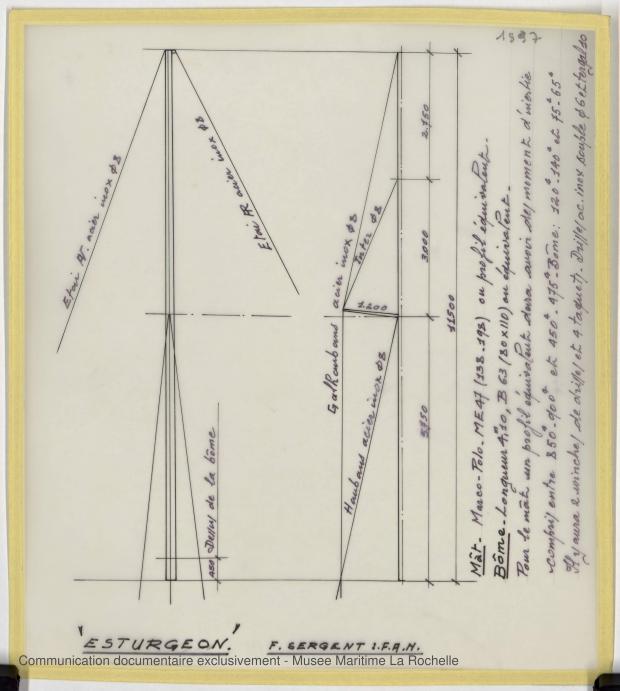 1997
Etai AV. acier inox φ8
Etai AR acier inox φ8
450 Dessus de la bôme
Galhaubans acier inox φ8
Inter φ8
1200
Haubans acier inox φ8
2.750
3000
5.750
11500
Mât - Marco-Polo. ME47 (138.198) ou profil équivalent.
Bôme - Longueur 4,30, B 63 (80×110) ou équivalent.
Pour le mât un profil équivalent devra avoir des moment d'inertie
compris entre 850-900 et 450-475. Bôme: 120-140 et 75-65
Il y aura 2 winches de drisses et 4 taquets. Drisses ac. inox souple φ6 et tergal φ10
"ESTURGEON."
F. SERGENT I.F.A.N.
Communication documentaire exclusivement - Musee Maritime La Rochelle